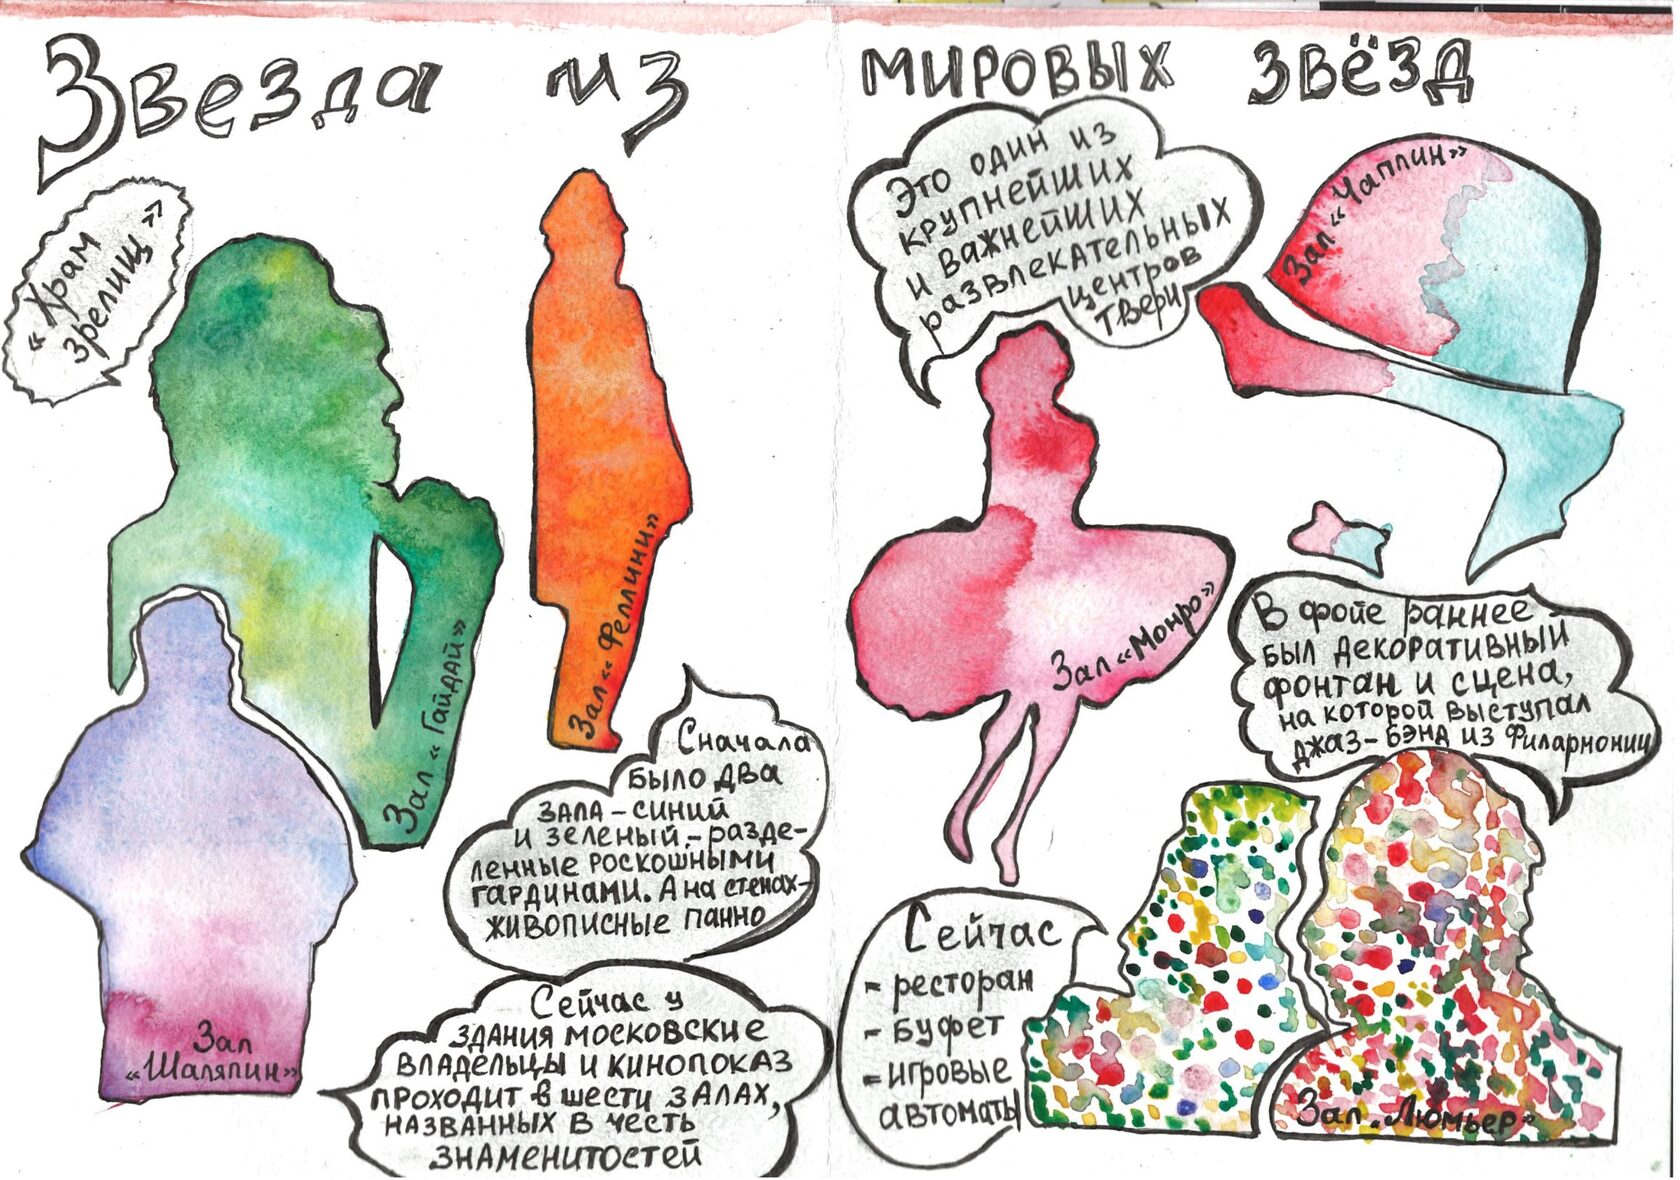 Звезда из мировых звёзд
«Храм
зрелищ»
Зал «Гайдай»
Зал
«Шаляпин»
Зал «Феллини»
Сначала
было два
зала – синий
и зеленый, – разде-
ленные роскошными
гардинами. А на стенах –
живописные панно
Сейчас у
здания московские
владельцы и кинопоказ
проходит в шести залах,
названных в честь
знаменитостей
Это один из
крупнейших
и важнейших
развлекательных
центров
Твери
Зал «Чаплин»
Зал «Монро»
В фойе раннее
был декоративный
фонтан и сцена,
на которой выступал
джаз-бэнд из Филармонии
Сейчас
- ресторан
- буфет
- игровые
автоматы
Зал „Люмьер"